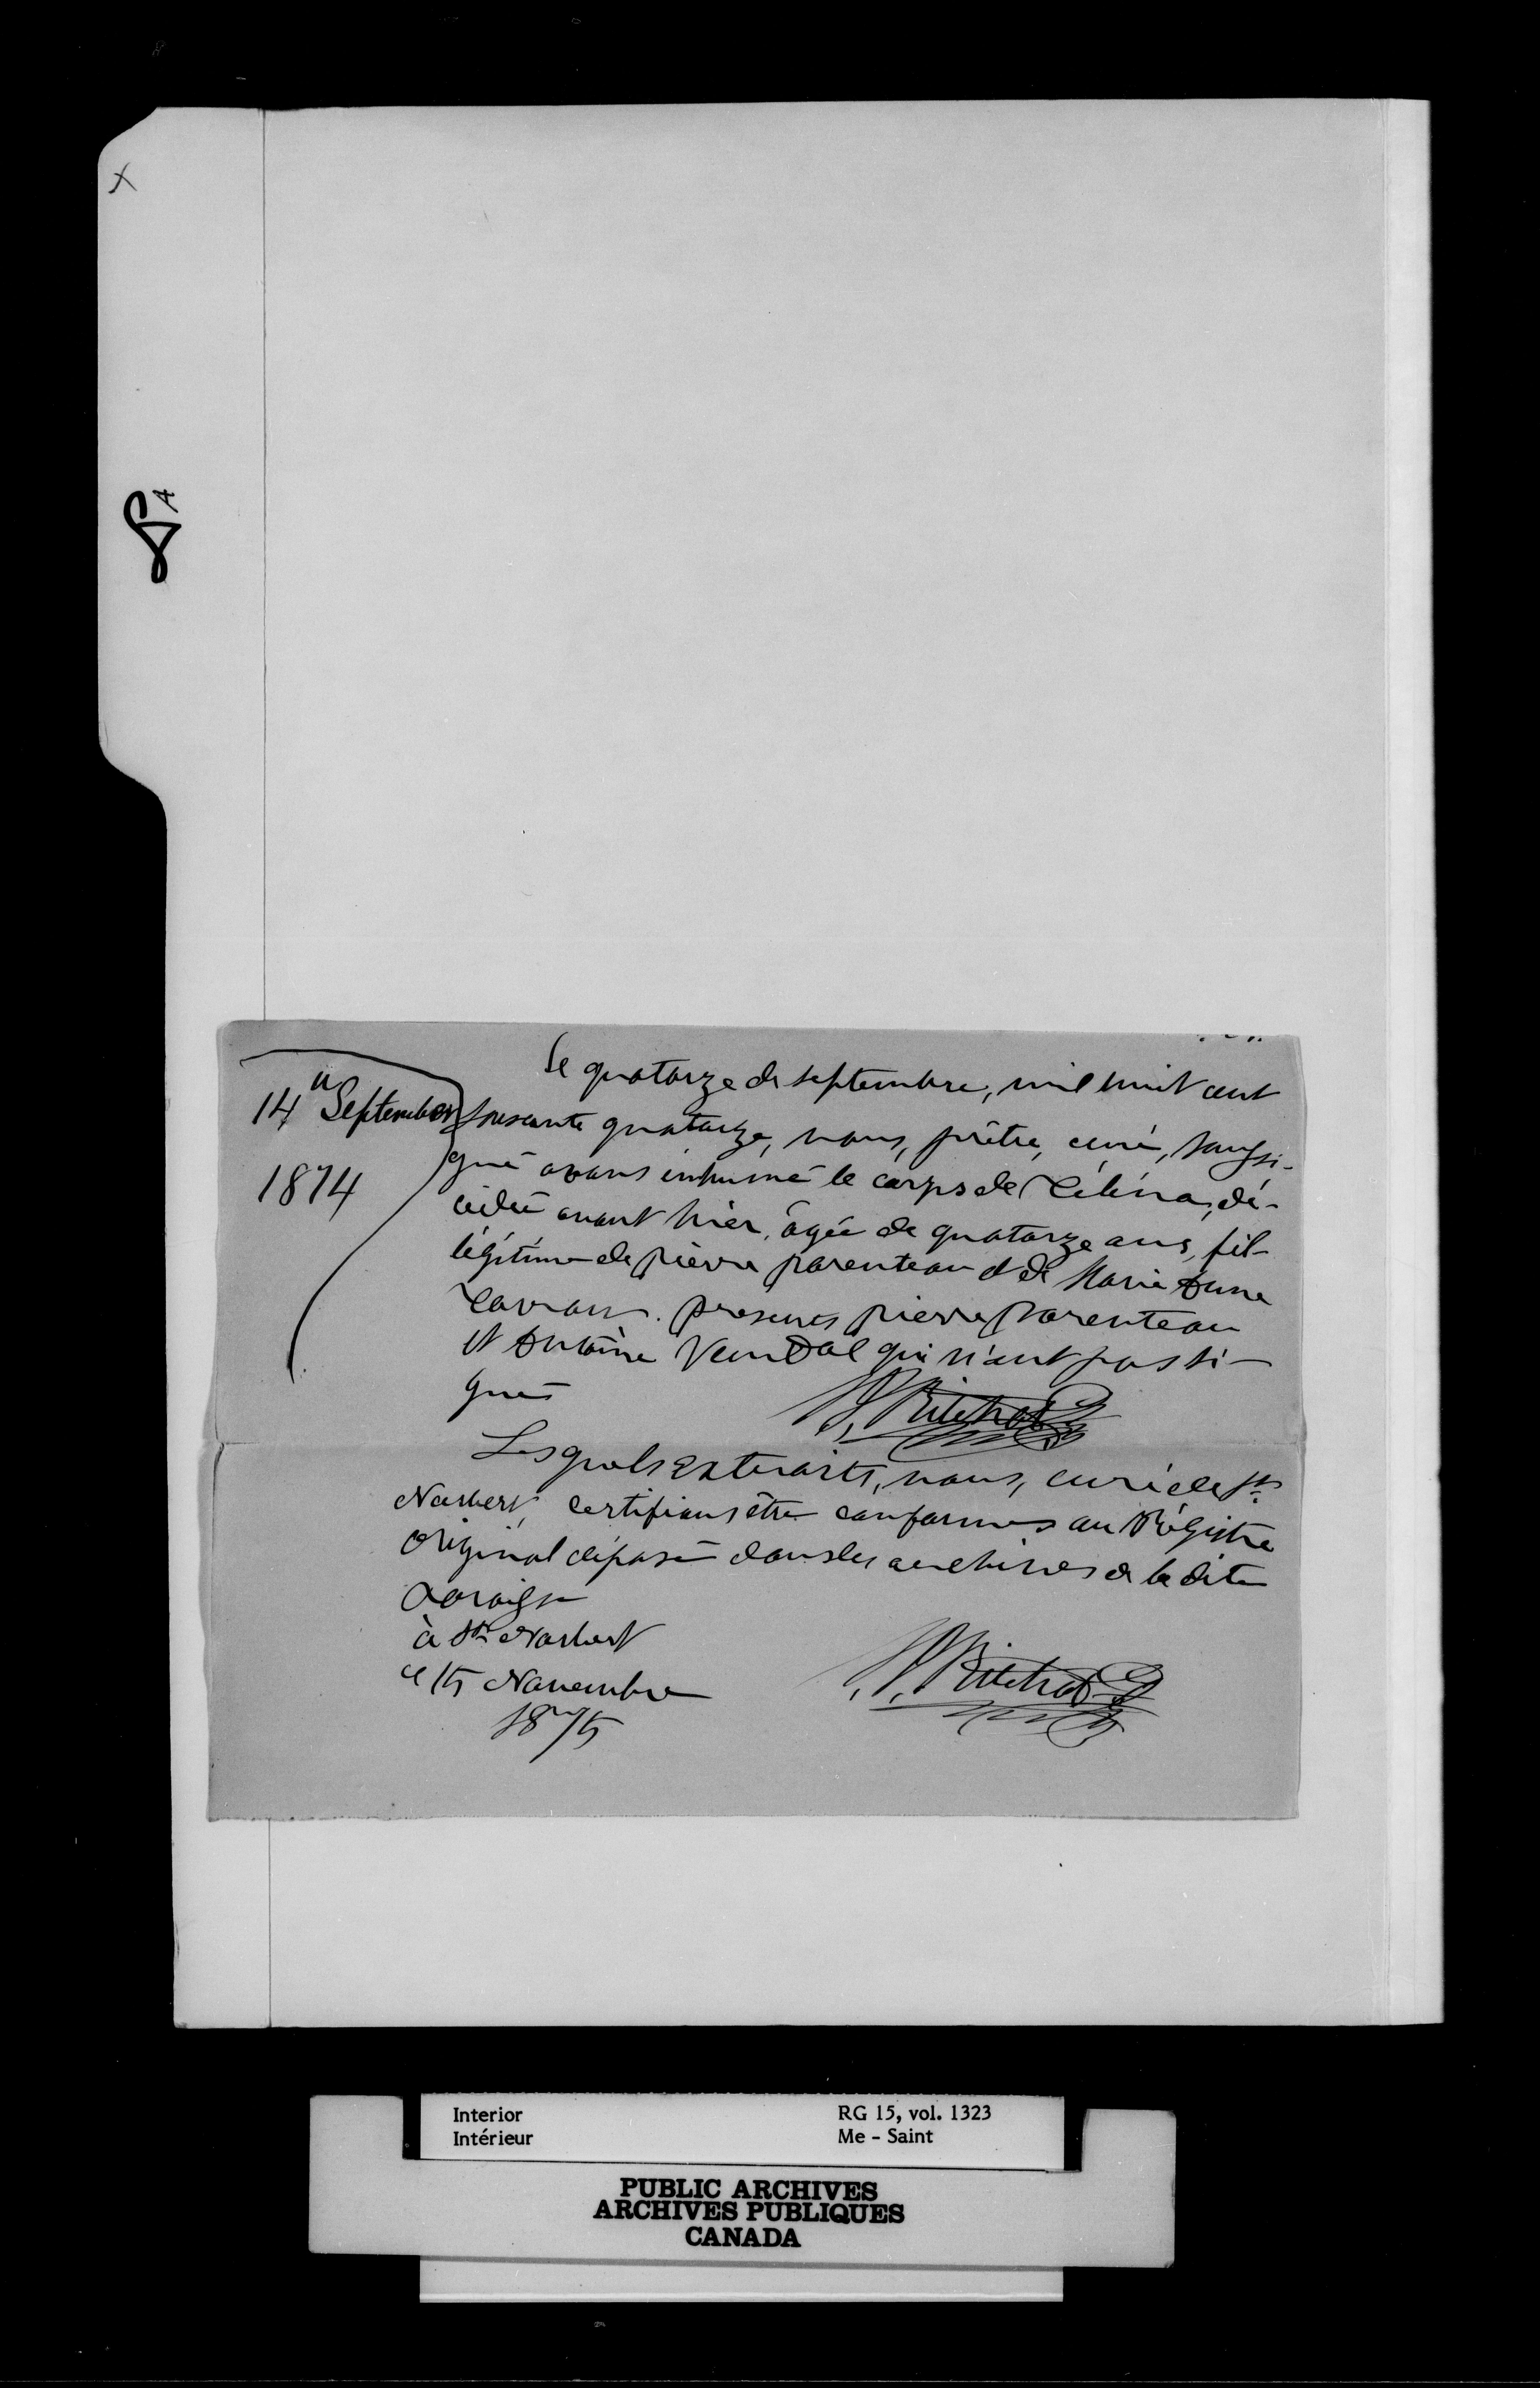 X
8A
14" September
1874
Le quatorze de septembre, mil huit cent
soixante quatorze, nous, prêtre, curé, soussi-
gné avons inhumé le corps de Célina, dé-
cédée avant hier, âgée de quatorze ans, fil-
légitime de pierre parenteau et de Marie Anne
Caron. presents pierre parenteau
et Antoine Vandal qui n'ont pas si-
gnés
J. Ritchot Ptre
Lesquels extraits, nous, curé de St.
Norbert, certifions être conformes au Régistre
Original déposé dans les archives de la dite
paroisse
à St. Norbert
ce 15 Novembre
1875
J. Ritchot Ptre
Interior
Intérieur
RG 15, vol. 1323
Me - Saint
PUBLIC ARCHIVES
ARCHIVES PUBLIQUES
CANADA